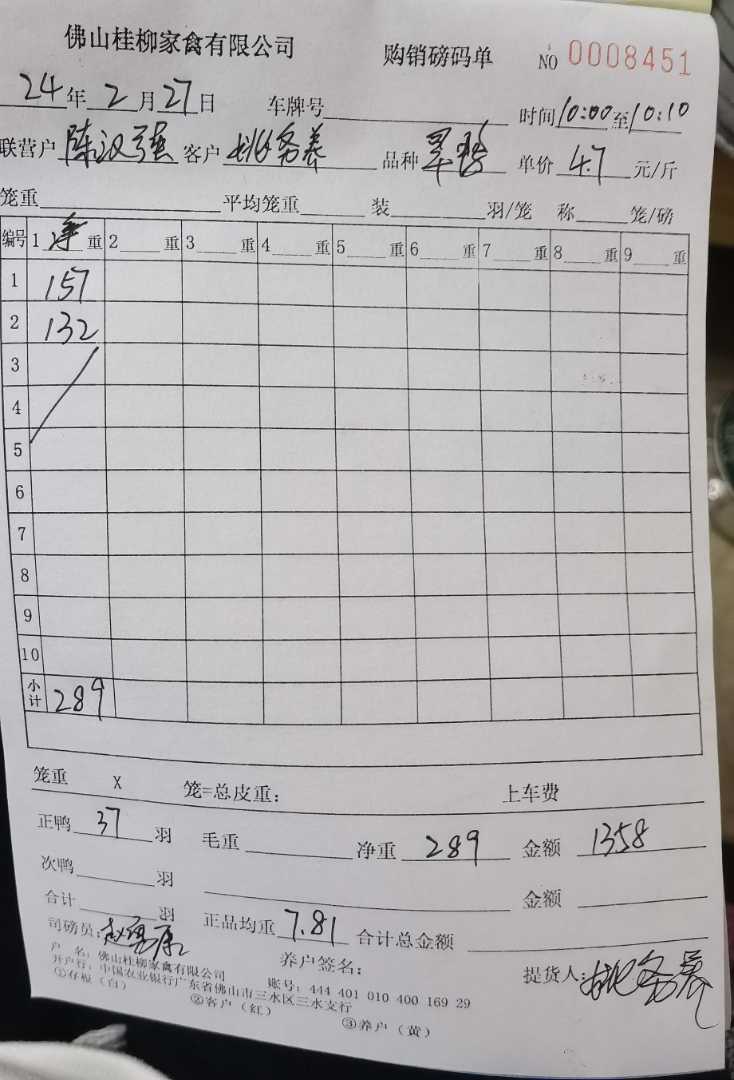 佛山桂柳家禽有限公司 购销磅码单 NO 0008451
24年2月27日 车牌号 时间10:00至10:10
联营户 陈汉强 客户 品种 单价 4.7 元/斤
笼重 平均笼重 装 羽/笼 称 笼/磅
编号 1 净重 2 重 3 重 4 重 5 重 6 重 7 重 8 重 9 重
1 157
2 132
3
4
5
6
7
8
9
10
小计 289
笼重 X 笼=总皮重: 上车费
正鸭 37 羽 毛重 净重 289 金额 1358
次鸭 羽 金额
合计 羽 正品均重 7.81 合计总金额
司磅员: 养户签名: 提货人:
户 名: 佛山桂柳家禽有限公司 账号: 444 401 010 400 169 29
开户行: 中国农业银行广东省佛山市三水区三水支行
①存板(白) ②客户(红) ③养户(黄)